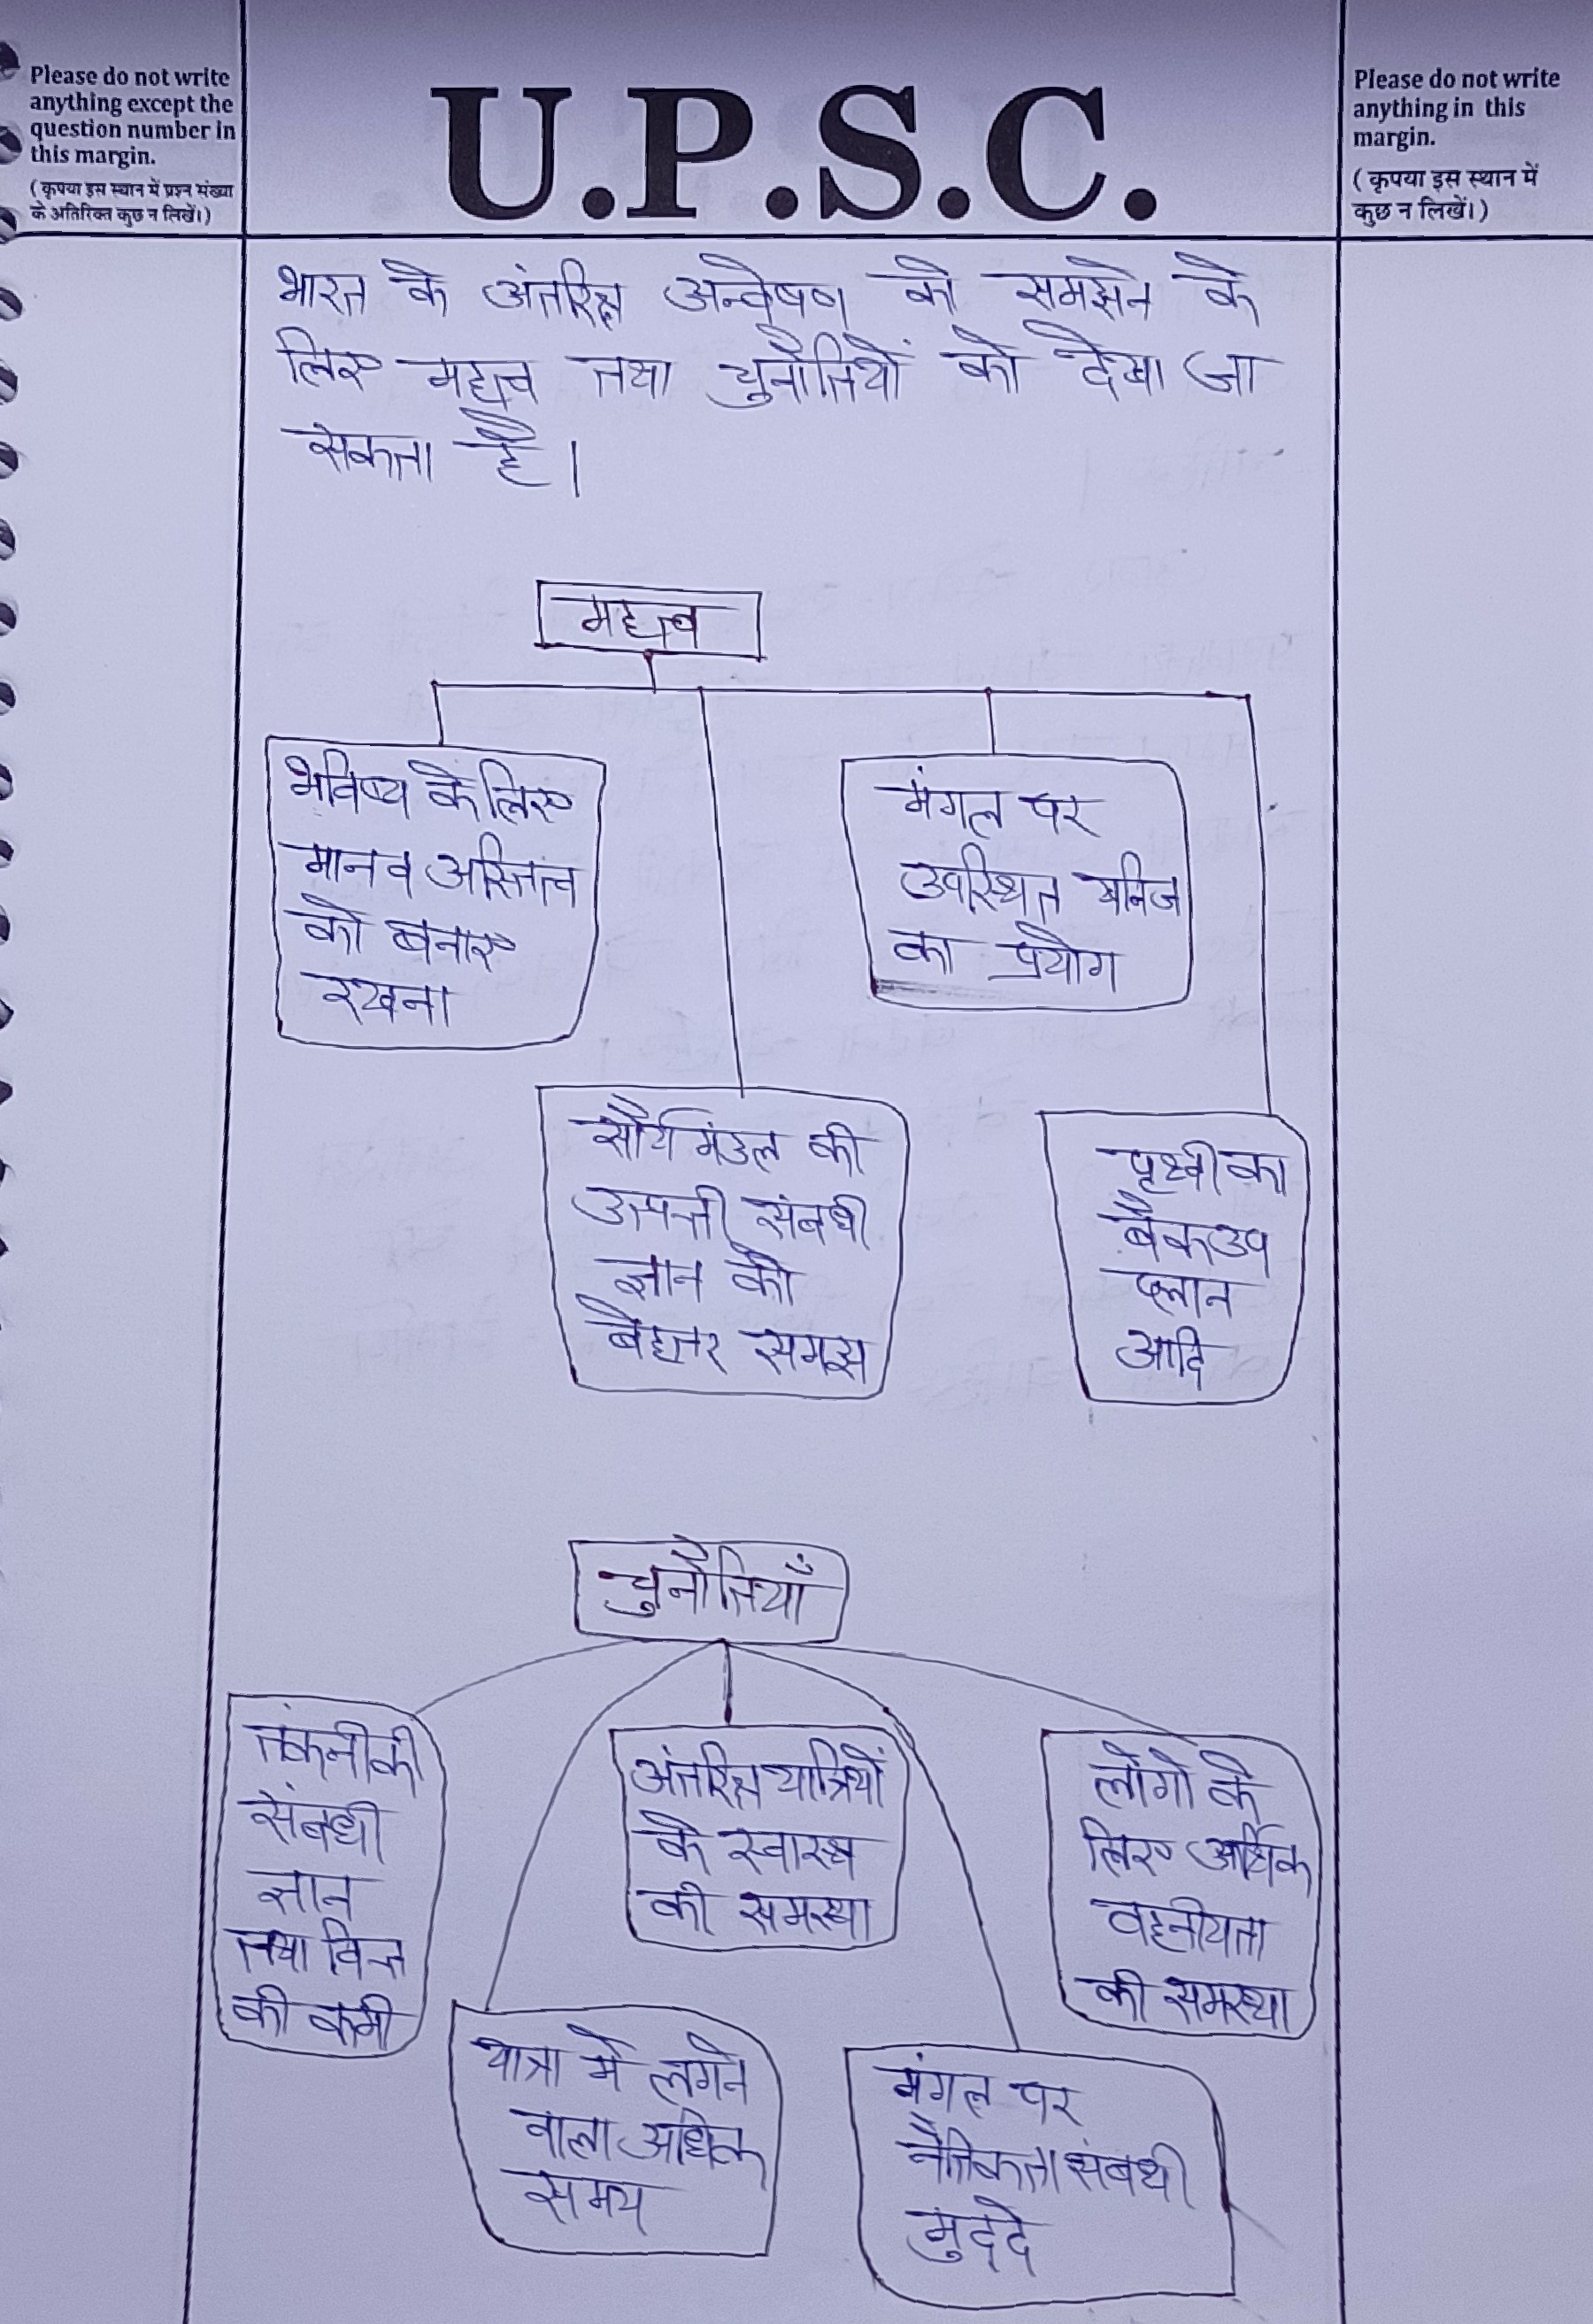 Please do not write
anything except the
question number in
this margin.
(कृपया इस स्थान में प्रश्न संख्या
के अतिरिक्त कुछ न लिखें।)
U.P.S.C.
Please do not write
anything in this
margin.
(कृपया इस स्थान में
कुछ न लिखें।)
भारत के अंतरिक्ष अन्वेषण को समझने के
लिए महत्व तथा चुनौतियों को देखा जा
सकता है।
महत्व
भविष्य के लिए
मानव अस्तित्व
को बनाए
रखना
मंगल पर
उपस्थित खनिज
का प्रयोग
सौर्य मंडल की
उत्पत्ती संबधी
ज्ञान की
बेहतर समझ
पृथ्वी का
बैकउप
प्लान
आदि
चुनौतियाँ
तकनीकी
संबधी
ज्ञान
तथा वित्त
की कमी
अंतरिक्ष यात्रियों
के स्वास्थ
की समस्या
लोगो के
लिए आर्थिक
वहनीयता
की समस्या
यात्रा मे लगने
वाला अधिक
समय
मंगल पर
नैतिकता संबधी
मुद्दे